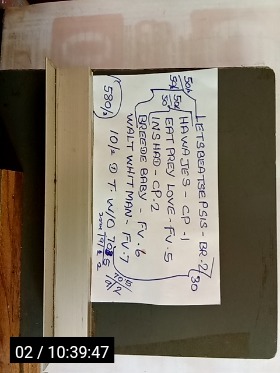 LETSBEATSEPSIS - BR.2
HAWAJES - CP - 1
EAT PREY LOVE - FV. 5
INSHAD - CP. 2
BREEDE BABY - FV. 6
WALT WHITMAN - FV. 7
10/2 T. W/O
580/2
50
50
30
30
02 / 10:39:47